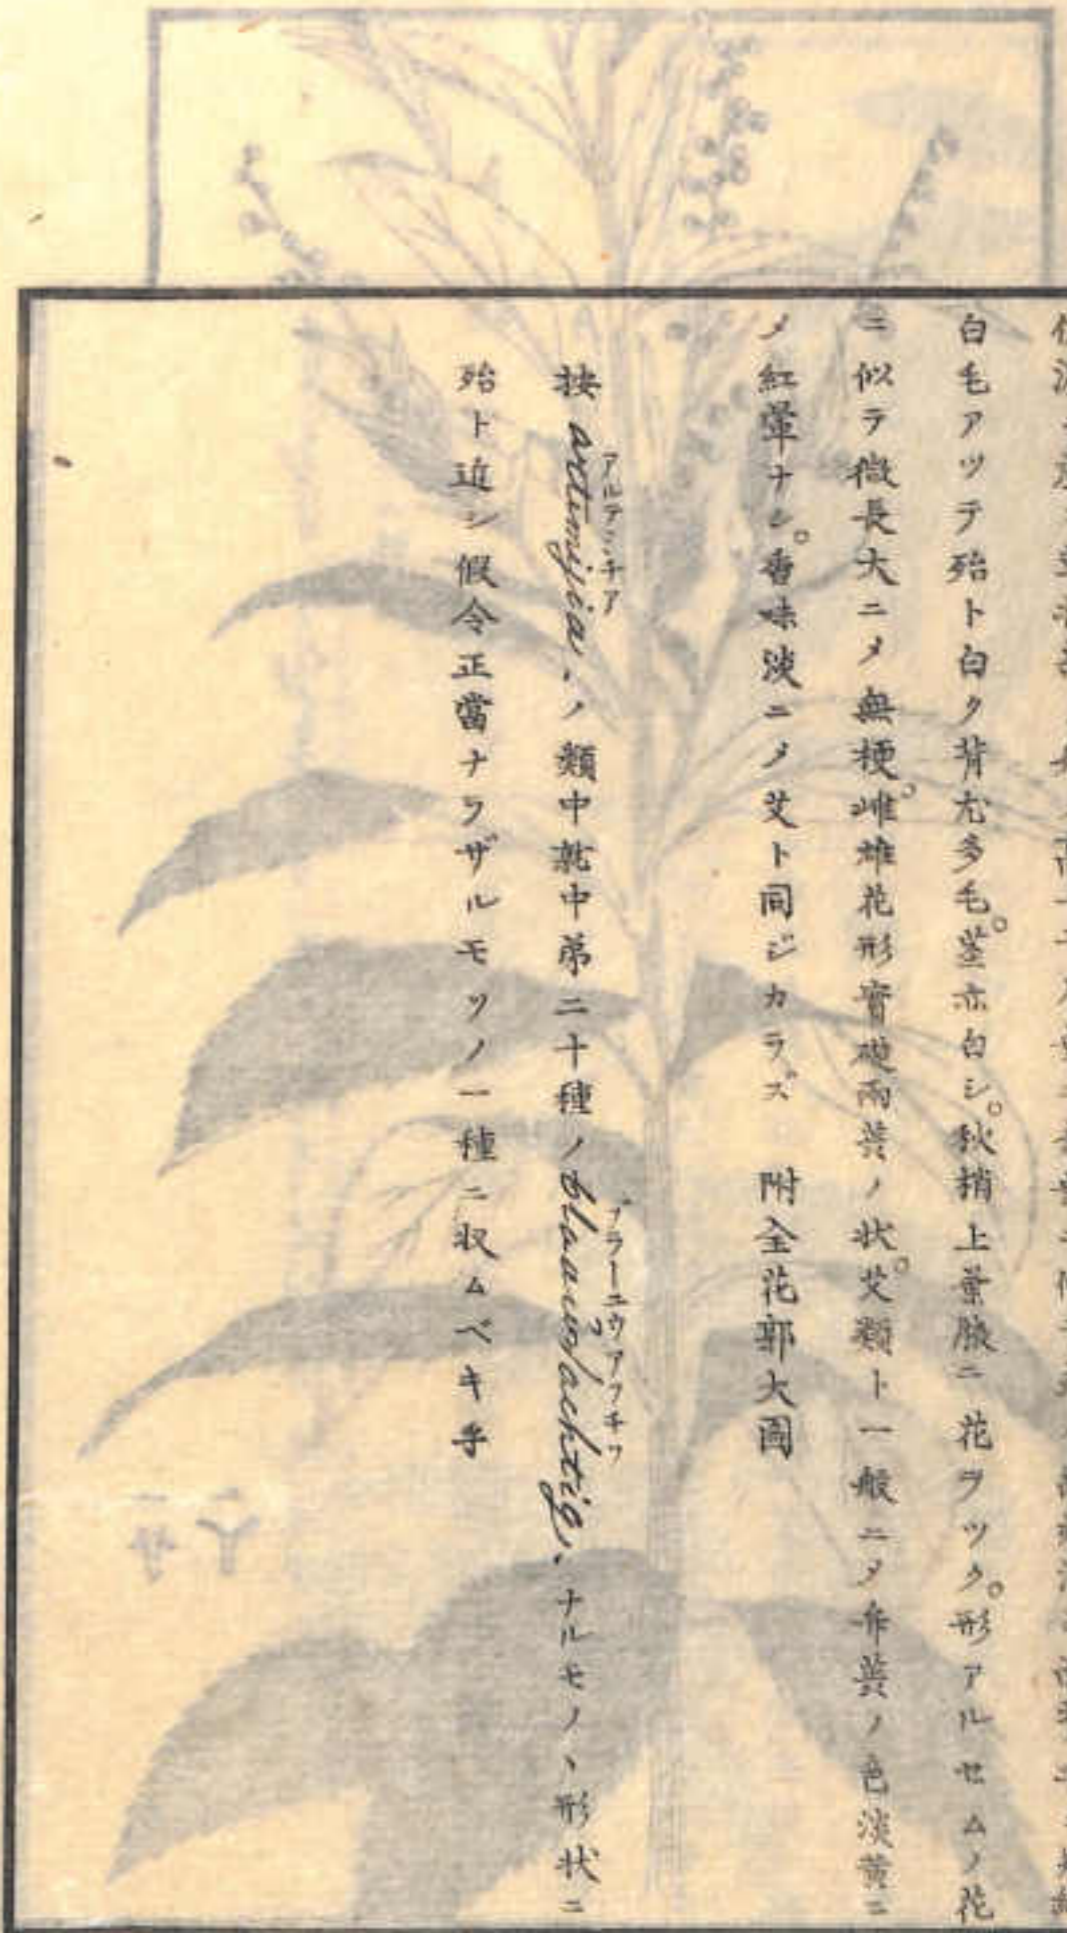 白毛アツテ殆ト白ク背尤多毛。莖亦白シ。秋梢上葉腋ニ花ヲツク。形アルセムノ花
ニ似テ微長大ニメ無梗。雌雄花形實礎兩蕋ノ状。艾類ト一般ニメ弁蕋ノ色淡黄ニ
メ紅暈ナシ。香味淡ニメ艾ト同ジカラズ 附全花郭大圖
按 artemijia、ノ類中就中第二十種ノ blaauwachtig、ナルモノヽ形状ニ
殆ト近シ假令正當ナラザルモソノ一種ニ収ムベキ乎